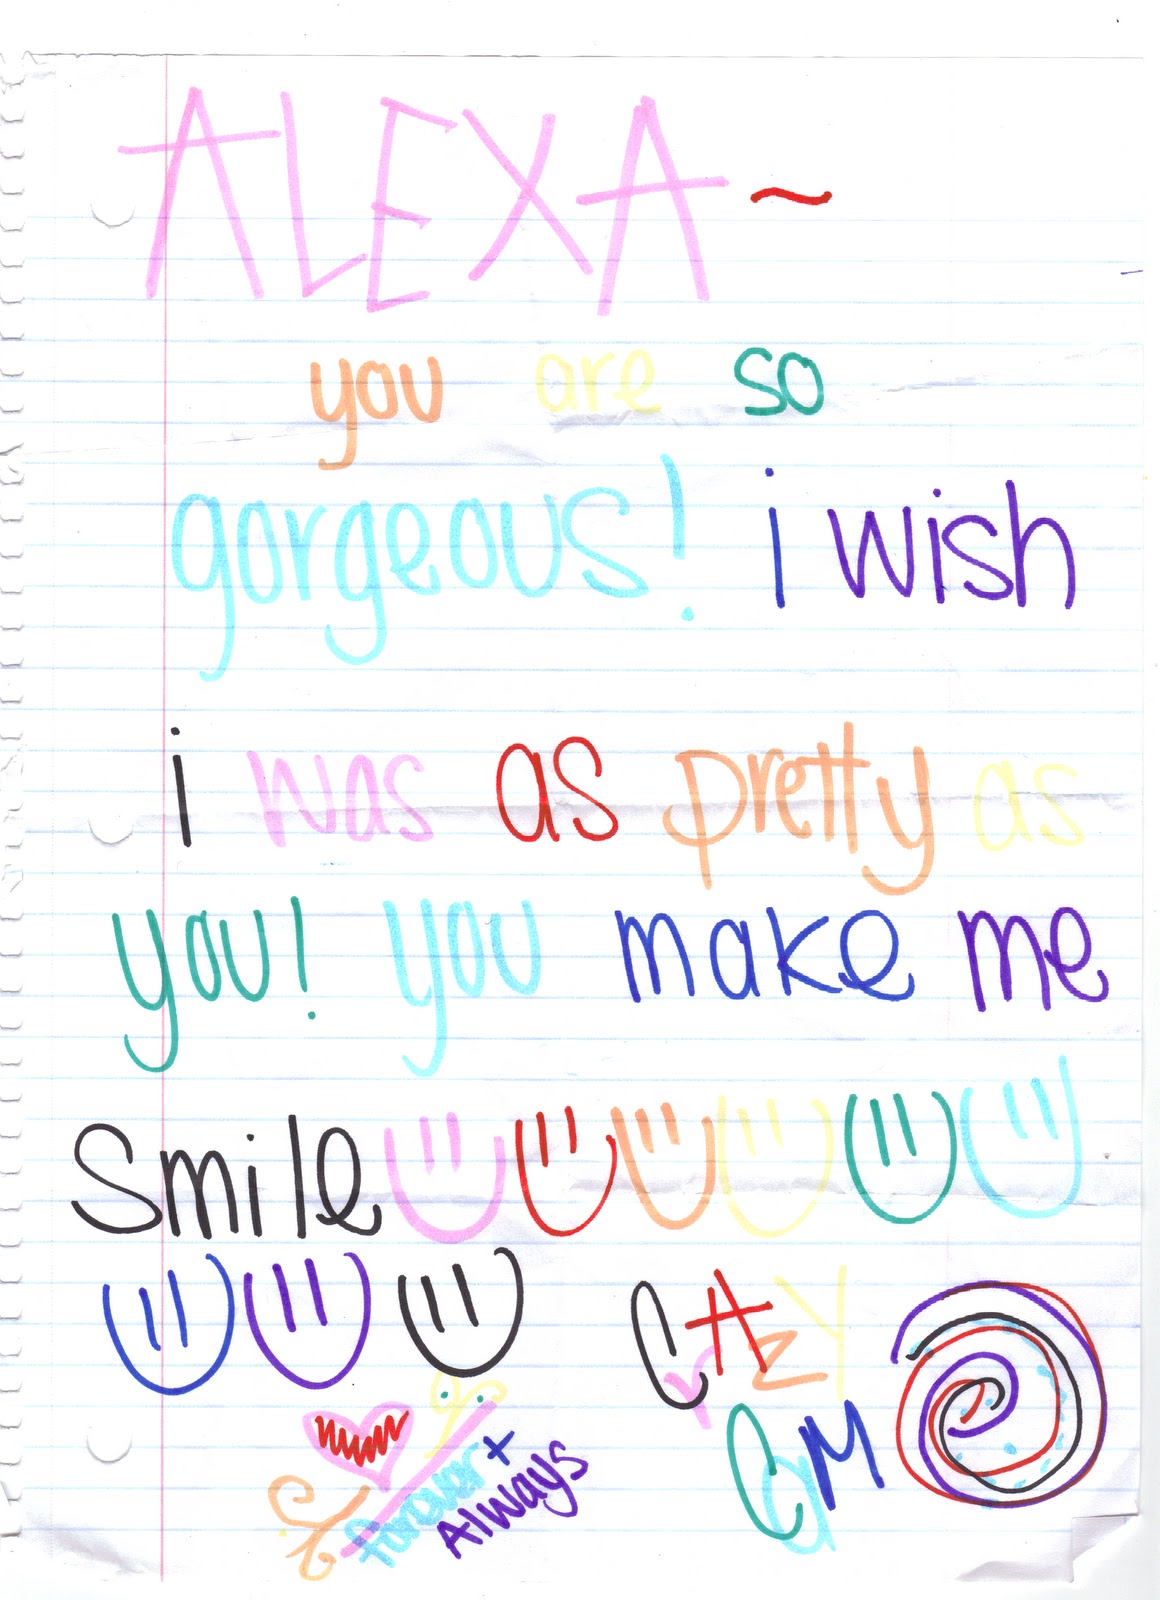 ALEXA ~
you are so
gorgeous! i wish
i was as pretty as
you! you make me
smile
CrAZY
CGM
forever +
Always